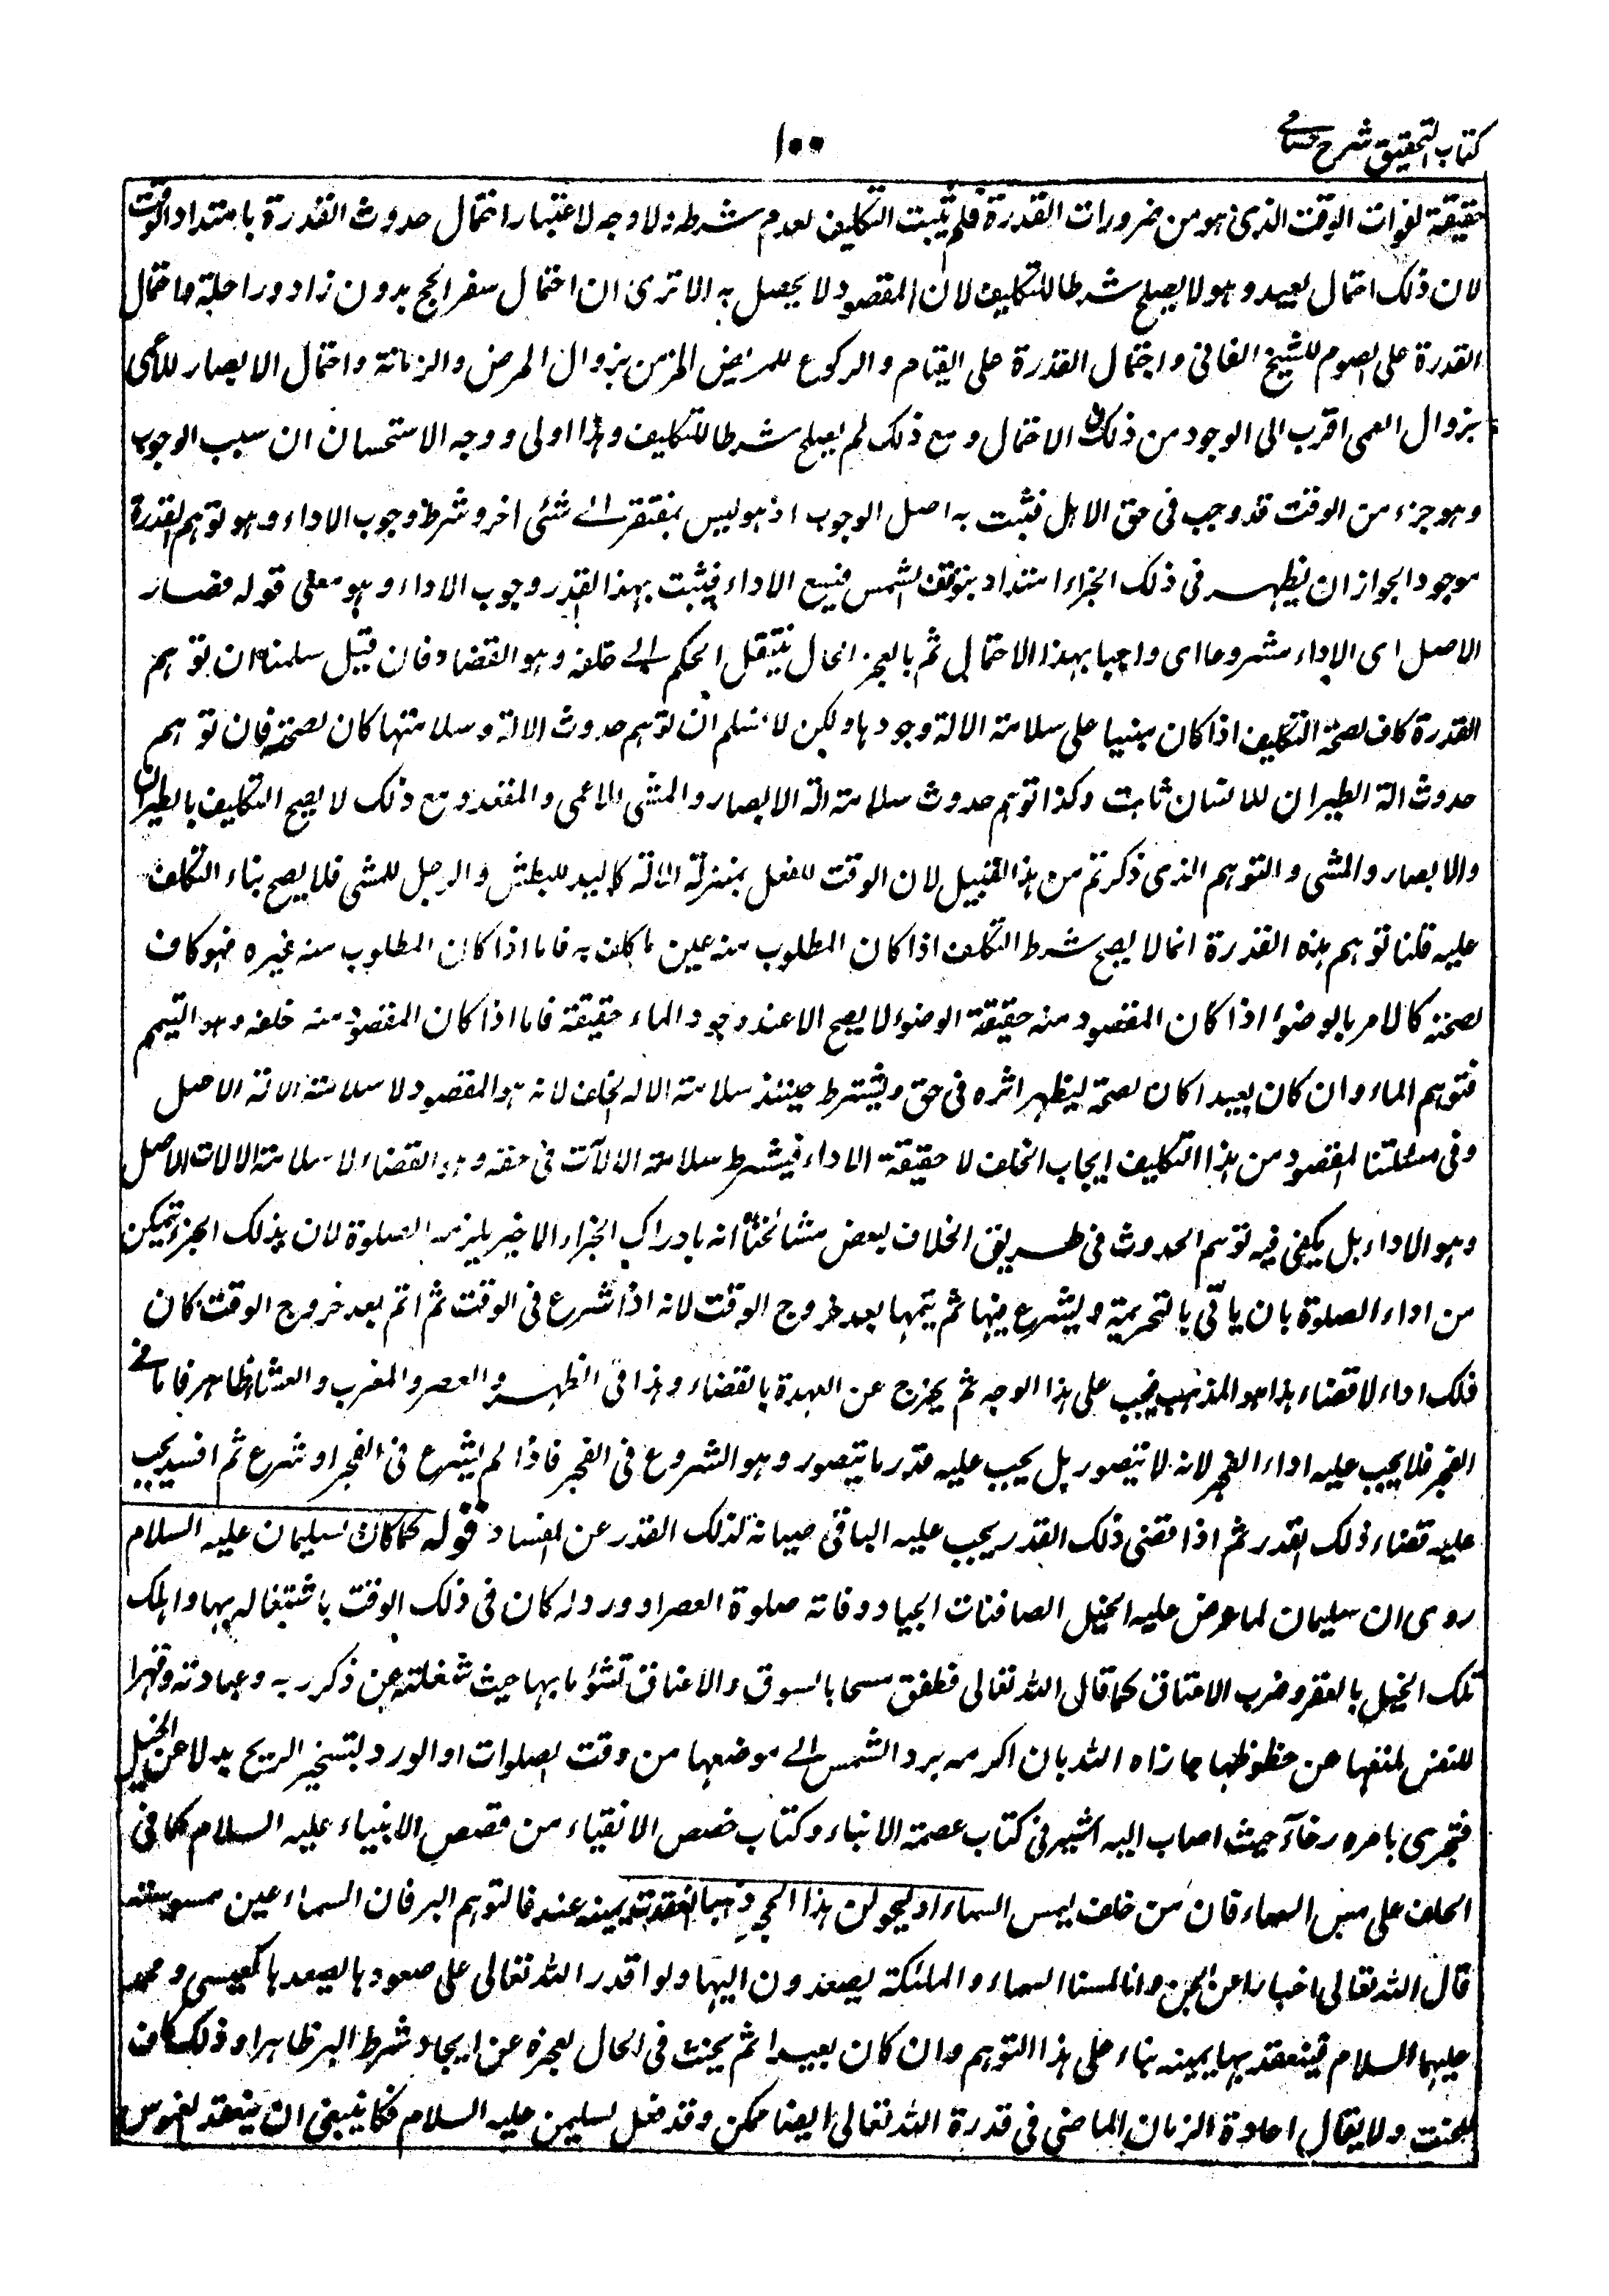 كتاب التحقيق شرح حسامى
١٠٠
حقيقة لفوات الوقت الذى هو من ضرورات القدرة فلم يثبت التكليف لعدم شرطه ولا وجه لاعتبار احتمال حدوث القدرة بامتداد الوقت
لان ذلك احتمال بعيد وهو لا يصلح شرطا للتكليف لان المقصود لا يحصل به الا ترى ان احتمال سفر الحج بدون زاد وراحلة واحتمال
القدرة على الصوم للشيخ الفانى واحتمال القدرة على القيام والركوع للمريض المزمن بزوال المرض والزمانة واحتمال الابصار للاعمى
بزوال العمى اقرب الى الوجود من ذلك الاحتمال ومع ذلك لم يصلح شرطا للتكليف وهذا اولى ووجه الاستحسان ان سبب الوجوب
وهو جزء من الوقت قد وجب فى حق الاهل فثبت به اصل الوجوب اذ هو ليس بمفتقر الى شئى اخر وشرط وجوب الاداء وهو توهم القدرة
موجود الجواز ان يظهر فى ذلك الجزاء امتداد بتوقف الشمس فيسع الاداء فيثبت بهذا القدر وجوب الاداء وهو معنى قوله فصار
الاصل اى الاداء مشروعا اى واجبا بهذا الاحتمال ثم بالعجز الحال ينتقل الحكم الى خلفه وهو القضاء فان قيل سلمنا ان توهم
القدرة كاف لصحة التكليف اذا كان مبنيا على سلامة الالة وجودها ولكن لا نسلم ان توهم حدوث الالة وسلامتها كان لصحته فان توهم
حدوث الة الطيران للانسان ثابت وكذا توهم حدوث سلامة الة الابصار والمشى للاعمى والمقعد ومع ذلك لا يصح التكليف بالطيران
والابصار والمشى والتوهم الذى ذكرتم من هذا القبيل لان الوقت للفعل بمنزلة الالة كاليد للبطش والرجل للمشى فلا يصح بناء التكلف
عليه قلنا توهم هذه القدرة انما لا يصح شرط التكلف اذا كان المطلوب منه عين ما كلف به فاما اذا كان المطلوب منه غيره فهو كاف
لصحته كالامر بالوضوء اذا كان المقصود منه حقيقة الوضوء لا يصح الا عند وجود الماء حقيقة فاما اذا كان المقصود منه خلفه وهو التيمم
فتوهم الماء وان كان بعيدا كان لصحة ليظهر اثره فى حق ويشترط حينئذ سلامة الالة لخلف لانه هو المقصود لا سلامة الالة الاصل
وفى مسئلتنا المقصود من هذا التكليف ايجاب الخلف لا حقيقة الاداء فيشرط سلامة الالآت فى حقه وهو القضاء لا سلامة الالات الاصل
وهو الاداء بل يكفى فيه توهم الحدوث فى طريق الخلاف لبعض مشائخنا انه بادراك الجزاء الاخير يلزمه الصلوة لان بذلك الجزء يتمكن
من اداء الصلوة بان ياتى بالتحريمة ويشرع فيها ثم يتمها بعد خروج الوقت لانه اذا شرع فى الوقت ثم اتم بعد خروج الوقت كان
ذلك اداء لا قضاء هذا هو المذهب فيجب على هذا الوجه ثم يخرج عن العهدة بالقضاء وهذا فى الظهر والعصر والمغرب والعشاء ظاهر فاما فى
الفجر فلا يجب عليه اداء الفجر لانه لا يتصور بل يجب عليه قدر ما يتصور وهو الشروع فى الفجر فاذا لم يشرع فى الفجر او شرع ثم افسد يجب
عليه قضاء ذلك القدر ثم اذا قضى ذلك القدر يجب عليه الباقى صيانة لذلك القدر عن الفساد قوله كما كان لسليمان عليه السلام
روى ان سليمان لما عرض عليه الخيل الصافنات الجياد وفاته صلوة العصر او ورد له كان فى ذلك الوقت باشتغاله بها واهلك
تلك الخيل بالعقر وضرب الاعناق كما قال الله تعالى فطفق مسحا بالسوق والاعناق تشؤما بها حيث شغلته عن ذكر ربه وعبادته وقهرا
للنفس لمنعها عن حظوظها جازاه الله بان اكرمه برد الشمس الى موضعها من وقت الصلوات او الورد لتسخير الريح بدلا عن الخيل
فتجرى بامره رخآء حيث اصاب اليه اشير فى كتاب عصمة الانبياء وكتاب حصص الاتقياء من قصص الانبياء عليه السلام كما فى
الحلف على مس السماء فان من خلف ليمس السماء او ليحولن هذا الحجر ذهبا انعقدت يمينه عندنا لتوهم البر فان السماء عين ممسوسة
قال الله تعالى اخبارا عن الجن وانا لمسنا السماء والملئكة يصعدون اليها ولو اقدر الله تعالى على صعودها لصعدها كعيسى ومحمد
عليهما السلام فينعقد بها يمينه بناء على هذا التوهم وان كان بعيدا ثم يحنث فى الحال لعجزه عن ايجاد شرط البر ظاهرا وذلك كاف
للحنث ولا يقال اعادة الزمان الماضى فى قدرة الله تعالى ايضا ممكن وقد فعل لسليمن عليه السلام فكا ينبغى ان ينعقد لغموس